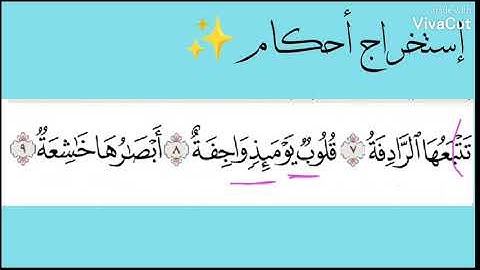 made with
VivaCut
إستخراج أحكام ✨
تَتْبَعُهَا ٱلرَّادِفَةُ ٧ قُلُوبٌ يَوْمَئِذٍ وَاجِفَةٌ ٨ أَبْصَٰرُهَا خَٰشِعَةٌ ٩